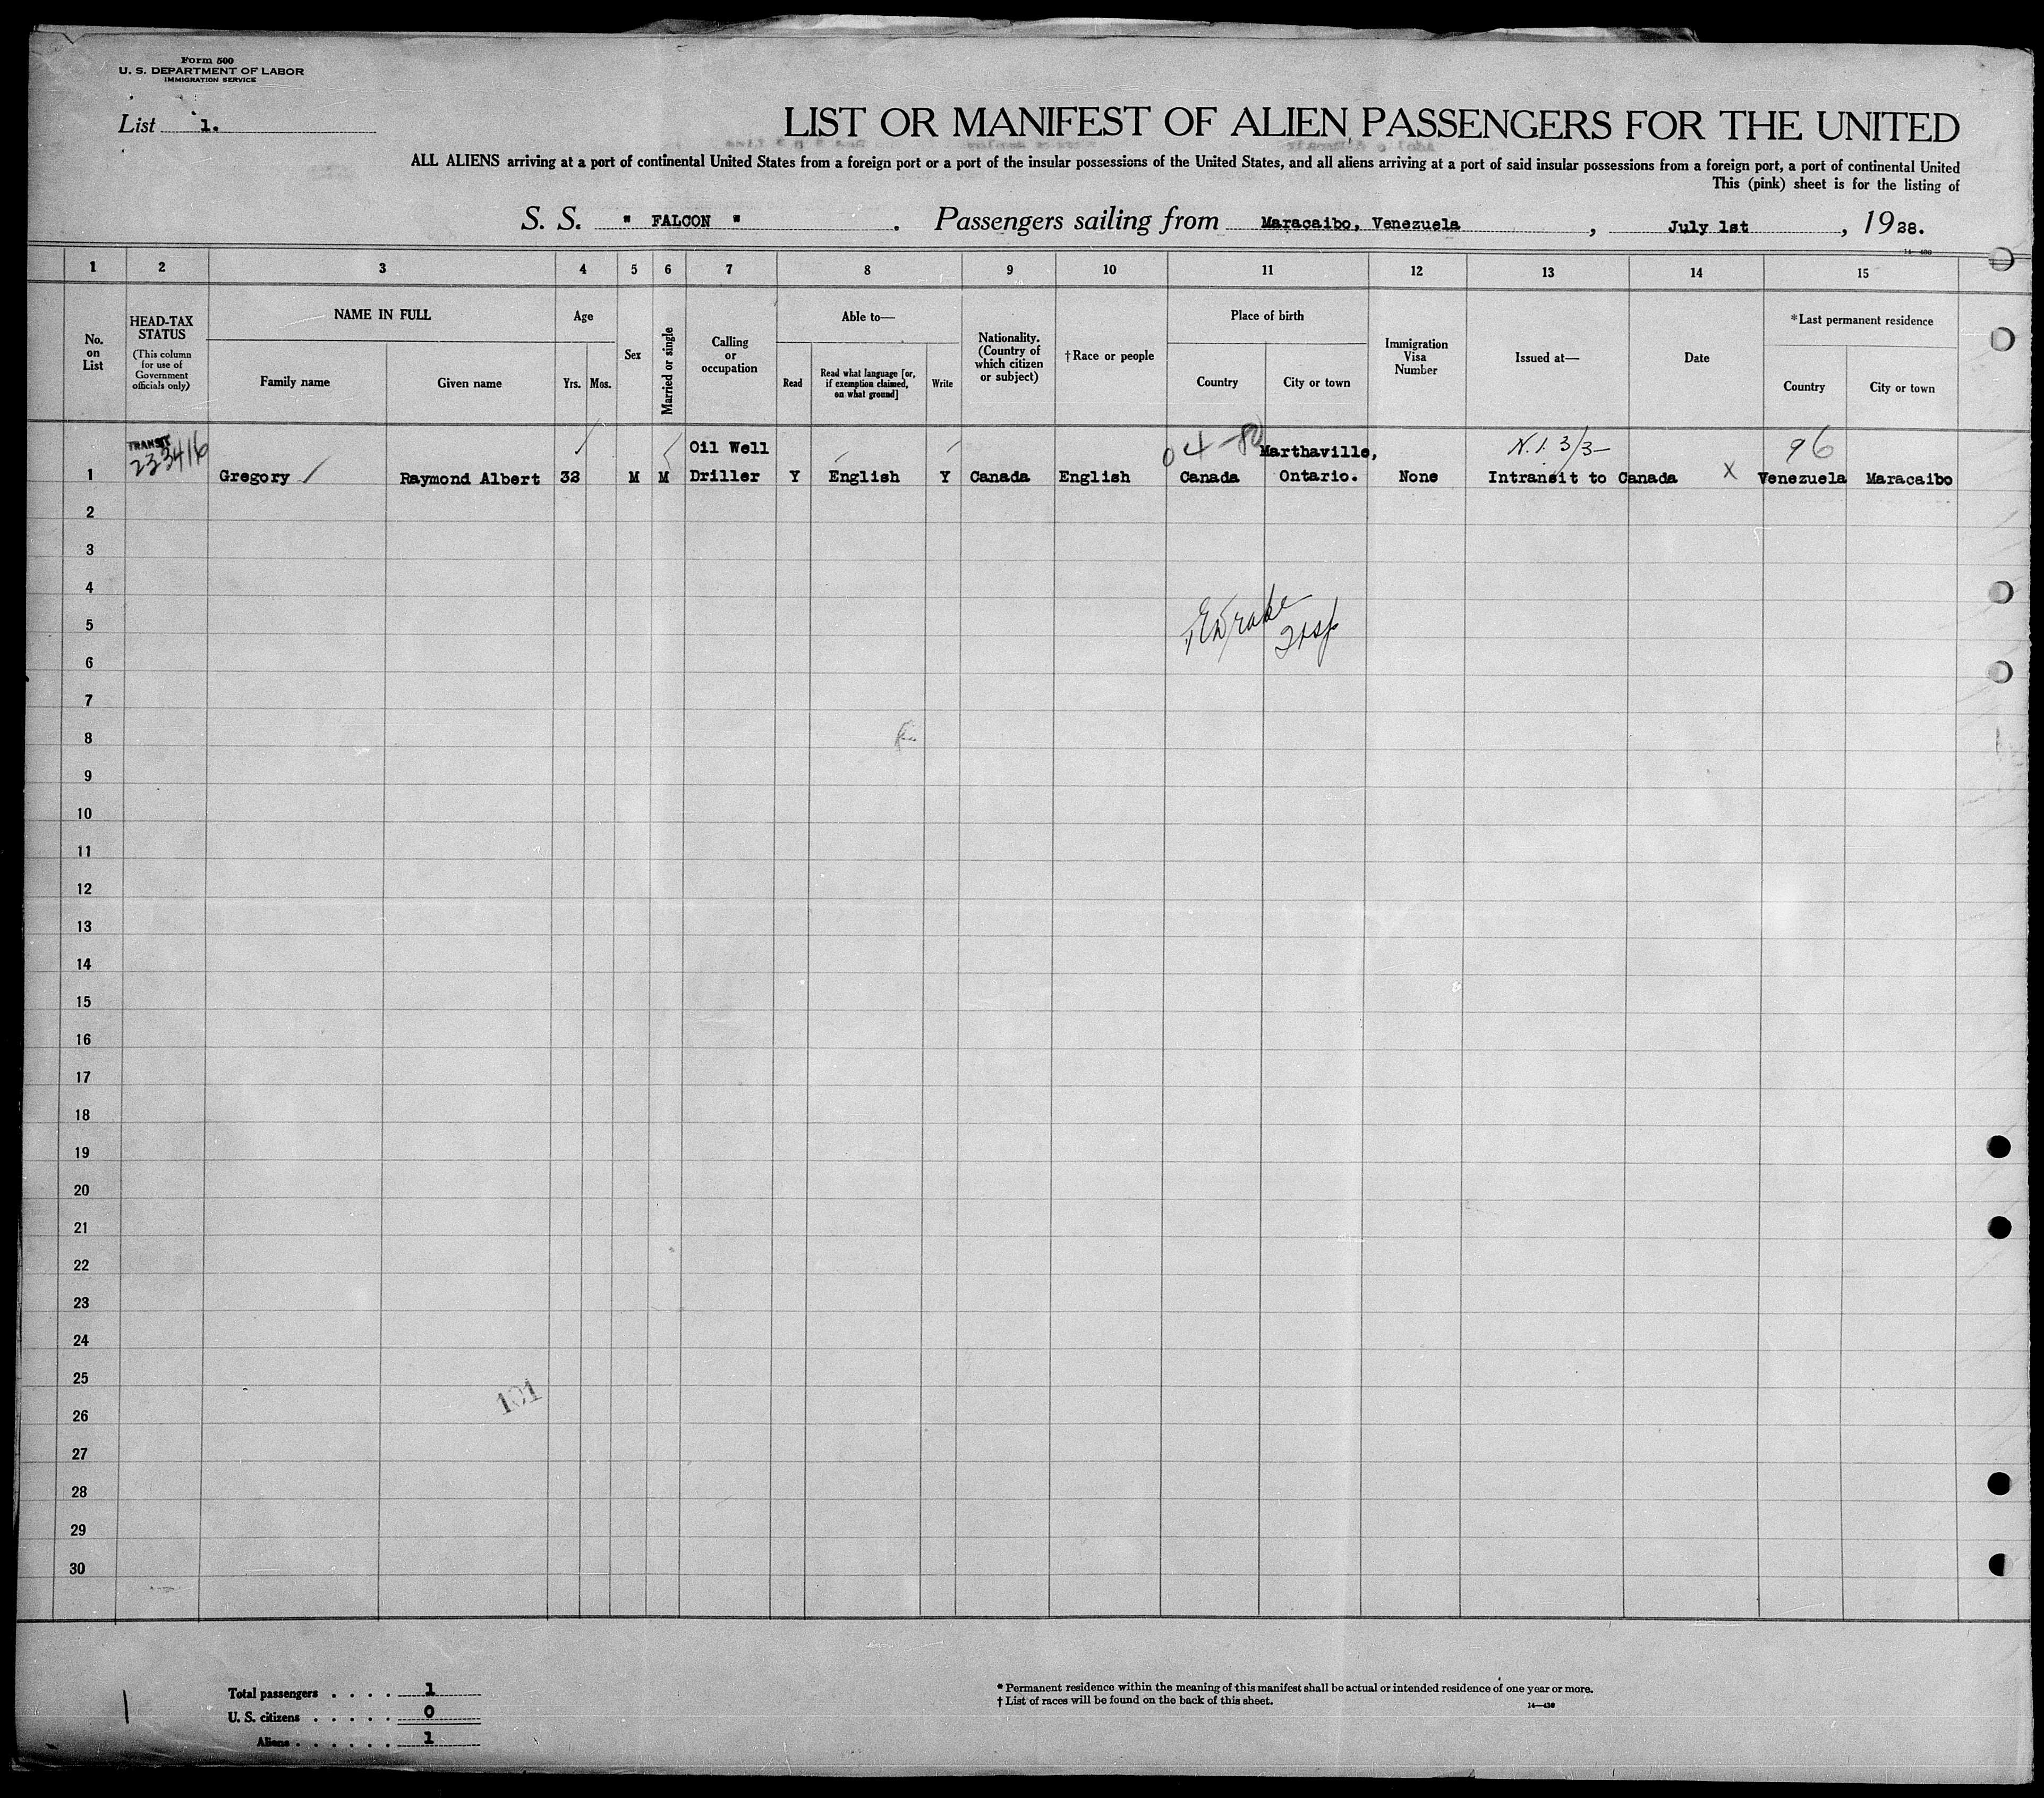 Form 500
U. S. DEPARTMENT OF LABOR
IMMIGRATION SERVICE
List 1.
LIST OR MANIFEST OF ALIEN PASSENGERS FOR THE UNITED
ALL ALIENS arriving at a port of continental United States from a foreign port or a port of the insular possessions of the United States, and all aliens arriving at a port of said insular possessions from a foreign port, a port of continental United
This (pink) sheet is for the listing of
S. S. " FALCON " . Passengers sailing from Maracaibo, Venezuela , July 1st , 1928.
14—430
1 2 3 4 5 6 7 8 9 10 11 12 13 14 15
No. on List
HEAD-TAX STATUS
(This column for use of Government officials only)
NAME IN FULL
Family name
Given name
Age
Yrs. Mos.
Sex
Married or single
Calling or occupation
Able to—
Read
Read what language [or, if exemption claimed, on what ground]
Write
Nationality. (Country of which citizen or subject)
†Race or people
Place of birth
Country
City or town
Immigration Visa Number
Issued at—
Date
*Last permanent residence
Country
City or town
TRANSIT
223416
04-80
N.I. 3/3-
96
1 Gregory Raymond Albert 32 M M Oil Well Driller Y English Y Canada English Canada Marthaville, Ontario. None Intransit to Canada X Venezuela Maracaibo
2
3
4
5
6
7
8
9
10
11
12
13
14
15
16
17
18
19
20
21
22
23
24
25
101
26
27
28
29
30
Total passengers . . . . 1
U. S. citizens . . . . . 0
Aliens . . . . . . 1
* Permanent residence within the meaning of this manifest shall be actual or intended residence of one year or more.
† List of races will be found on the back of this sheet.
14—430